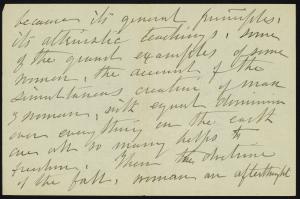 because its general principles,
its altruistic teachings, some
of the grand examples of some
women, the account of the
simultaneous creation of man
& woman, with equal dominion
over everything on the earth
are all so many helps to
freedom. Then the doctrine
of the fall, woman an afterthought